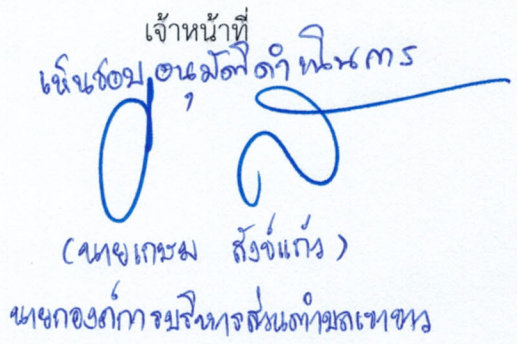 เจ้าหน้าที่
เห็นชอบ อนุมัติดำเนินการ
(นายเกษม สังข์แก้ว)
นายกองค์การบริหารส่วนตำบลเขาขาว